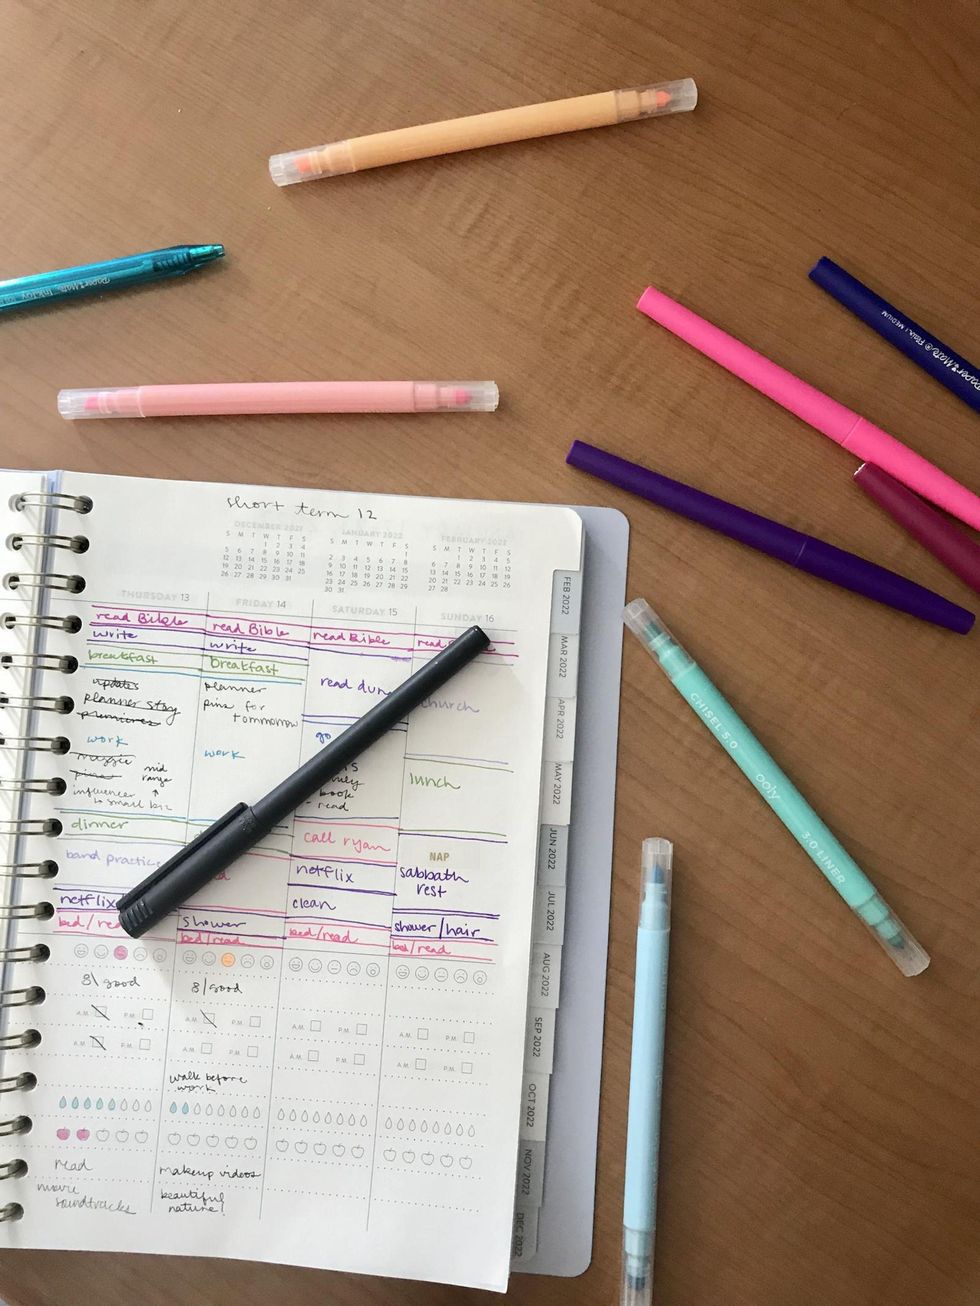 short term 12
DECEMBER 2021
S M T W T F S
1 2 3 4
5 6 7 8 9 10 11
12 13 14 15 16 17 18
19 20 21 22 23 24 25
26 27 28 29 30 31
JANUARY 2022
S M T W T F S
1
2 3 4 5 6 7 8
9 10 11 12 13 14 15
16 17 18 19 20 21 22
23 24 25 26 27 28 29
30 31
FEBRUARY 2022
S M T W T F S
1 2 3 4 5
6 7 8 9 10 11 12
13 14 15 16 17 18 19
20 21 22 23 24 25 26
27 28
THURSDAY 13
read Bible
write
breakfast
updates
planner stay
work
mid
range
influencer
to small biz
dinner
band practice
netflix
bed/read
8/good
A.M. P.M.
A.M. P.M.
read
more
soundtracks
FRIDAY 14
read Bible
write
breakfast
planner
pins for
tommorrow
work
shower
bed/read
8/good
A.M. P.M.
A.M. P.M.
walk before
work
makeup videos
beautiful
nature!
SATURDAY 15
read Bible
read dune
go
book
- read
call ryan
netflix
clean
bed/read
A.M. P.M.
A.M. P.M.
SUNDAY 16
read
church
lunch
NAP
sabbath
rest
shower/hair
bed/read
A.M. P.M.
A.M. P.M.
FEB 2022
MAR 2022
APR 2022
MAY 2022
JUN 2022
JUL 2022
AUG 2022
SEP 2022
OCT 2022
NOV 2022
DEC 2022
Paper Mate InkJoy
Paper Mate® Flair M MEDIUM
CHISEL 5.0 ooly 3.0 LINER